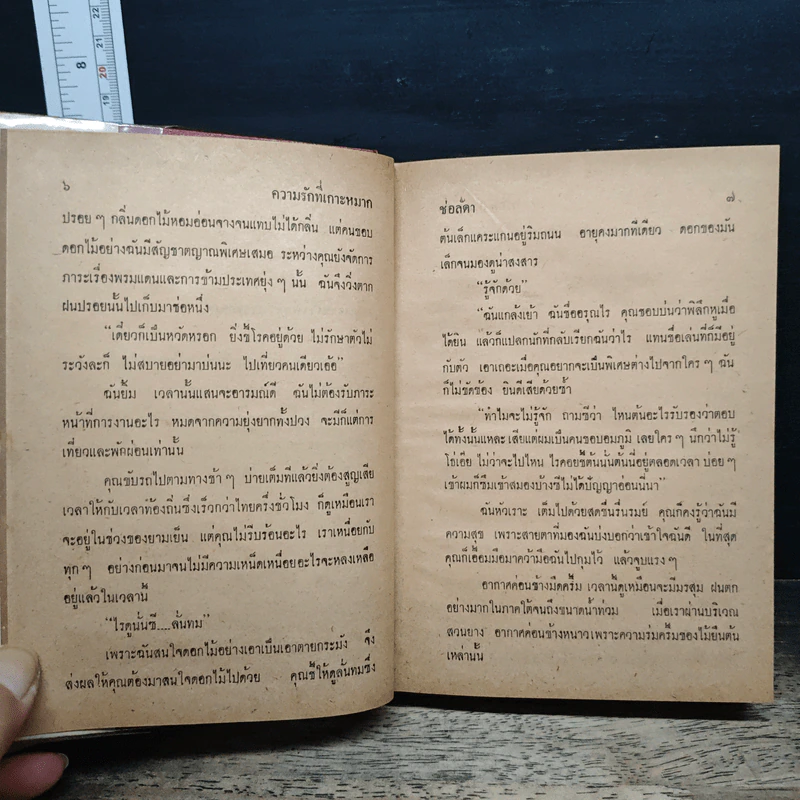 8
22
21
20
19
๖
ความรักที่เกาะหมาก
ปรอย ๆ กลิ่นดอกไม้หอมอ่อนจางจนแทบไม่ได้กลิ่น แต่คนชอบ
ดอกไม้อย่างฉันมีสัญชาตญาณพิเศษเสมอ ระหว่างคุณยังจัดการ
ภาระเรื่องพรมแดนและการข้ามประเทศยุ่ง ๆ นั้น ฉันจึงวิ่งตาก
ฝนปรอยนั้นไปเก็บมาช่อหนึ่ง
"เดี๋ยวก็เป็นหวัดหรอก ยิ่งขี้โรคอยู่ด้วย ไม่รักษาตัวไม่
ระวังละก็ ไม่สบายอย่ามาบ่นนะ ไปเที่ยวคนเดียวเอ้อ"
ฉันยิ้ม เวลานั้นแสนจะอารมณ์ดี ฉันไม่ต้องรับภาระ
หน้าที่การงานอะไร หมดจากความยุ่งยากทั้งปวง จะมีก็แต่การ
เที่ยวและพักผ่อนเท่านั้น
คุณขับรถไปตามทางช้า ๆ บ่ายเต็มทีแล้วยิ่งต้องสูญเสีย
เวลาให้กับเวลาท้องถิ่นซึ่งเร็วกว่าไทยครึ่งชั่วโมง ก็ดูเหมือนเรา
จะอยู่ในช่วงของยามเย็น แต่คุณไม่รีบร้อนอะไร เราเหนื่อยกับ
ทุก ๆ อย่างก่อนมาจนไม่มีความเหน็ดเหนื่อยอะไรจะหลงเหลือ
อยู่แล้วในเวลานี้
"ไรดูนั่นซี....ลั่นทม"
เพราะฉันสนใจดอกไม้อย่างเอาเป็นเอาตายกระมัง จึง
ส่งผลให้คุณต้องมาสนใจดอกไม้ไปด้วย คุณชี้ให้ดูลั่นทมซึ่ง
ช่อลัดา
๗
ต้นเล็กแคระแกนอยู่ริมถนน อายุคงมากทีเดียว ดอกของมัน
เล็กจนมองดูน่าสงสาร
"รู้จักด้วย"
"ฉันแกล้งเย้า ฉันชื่ออรุณไร คุณชอบบ่นว่าพิลึกหูเมื่อ
ได้ยิน แล้วก็แปลกนักที่กลับเรียกฉันว่าไร แทนชื่อเล่นที่ก็มีอยู่
กับตัว เอาเถอะเมื่อคุณอยากจะเป็นพิเศษต่างไปจากใคร ๆ ฉัน
ก็ไม่ขัดข้อง ยินดีเสียด้วยซ้ำ
"ทำไมจะไม่รู้จัก ถามซีว่า ไหนต้นอะไรรับรองว่าตอบ
ได้ทั้งนั้นแหละ เสียแต่ผมเป็นคนชอบอมภูมิ เลยใคร ๆ นึกว่าไม่รู้
โธ่เอ๊ย ไม่ว่าจะไปไหน ไรคอยชี้ต้นนั้นต้นนี้อยู่ตลอดเวลา บ่อย ๆ
เข้าผมก็ซึมเข้าสมองบ้างซีไม่ได้ปัญญาอ่อนนี่นา"
ฉันหัวเราะ เต็มไปด้วยสดชื่นรื่นรมย์ คุณก็คงรู้ว่าฉันมี
ความสุข เพราะสายตาที่มองฉันบ่งบอกว่าเข้าใจฉันดี ในที่สุด
คุณก็เอื้อมมือมาคว้ามือฉันไปกุมไว้ แล้วจูบแรง ๆ
อากาศค่อนข้างมืดครึ้ม เวลานี้ดูเหมือนจะมีมรสุม ฝนตก
อย่างมากในภาคใต้จนถึงขนาดน้ำท่วม เมื่อเราผ่านบริเวณ
สวนยาง อากาศค่อนข้างหนาวเพราะความร่มครึ้มของไม้ยืนต้น
เหล่านั้น